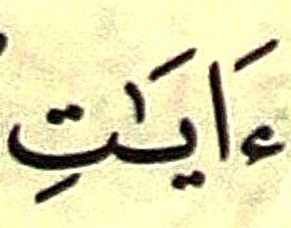 ءَايَـٰتِ